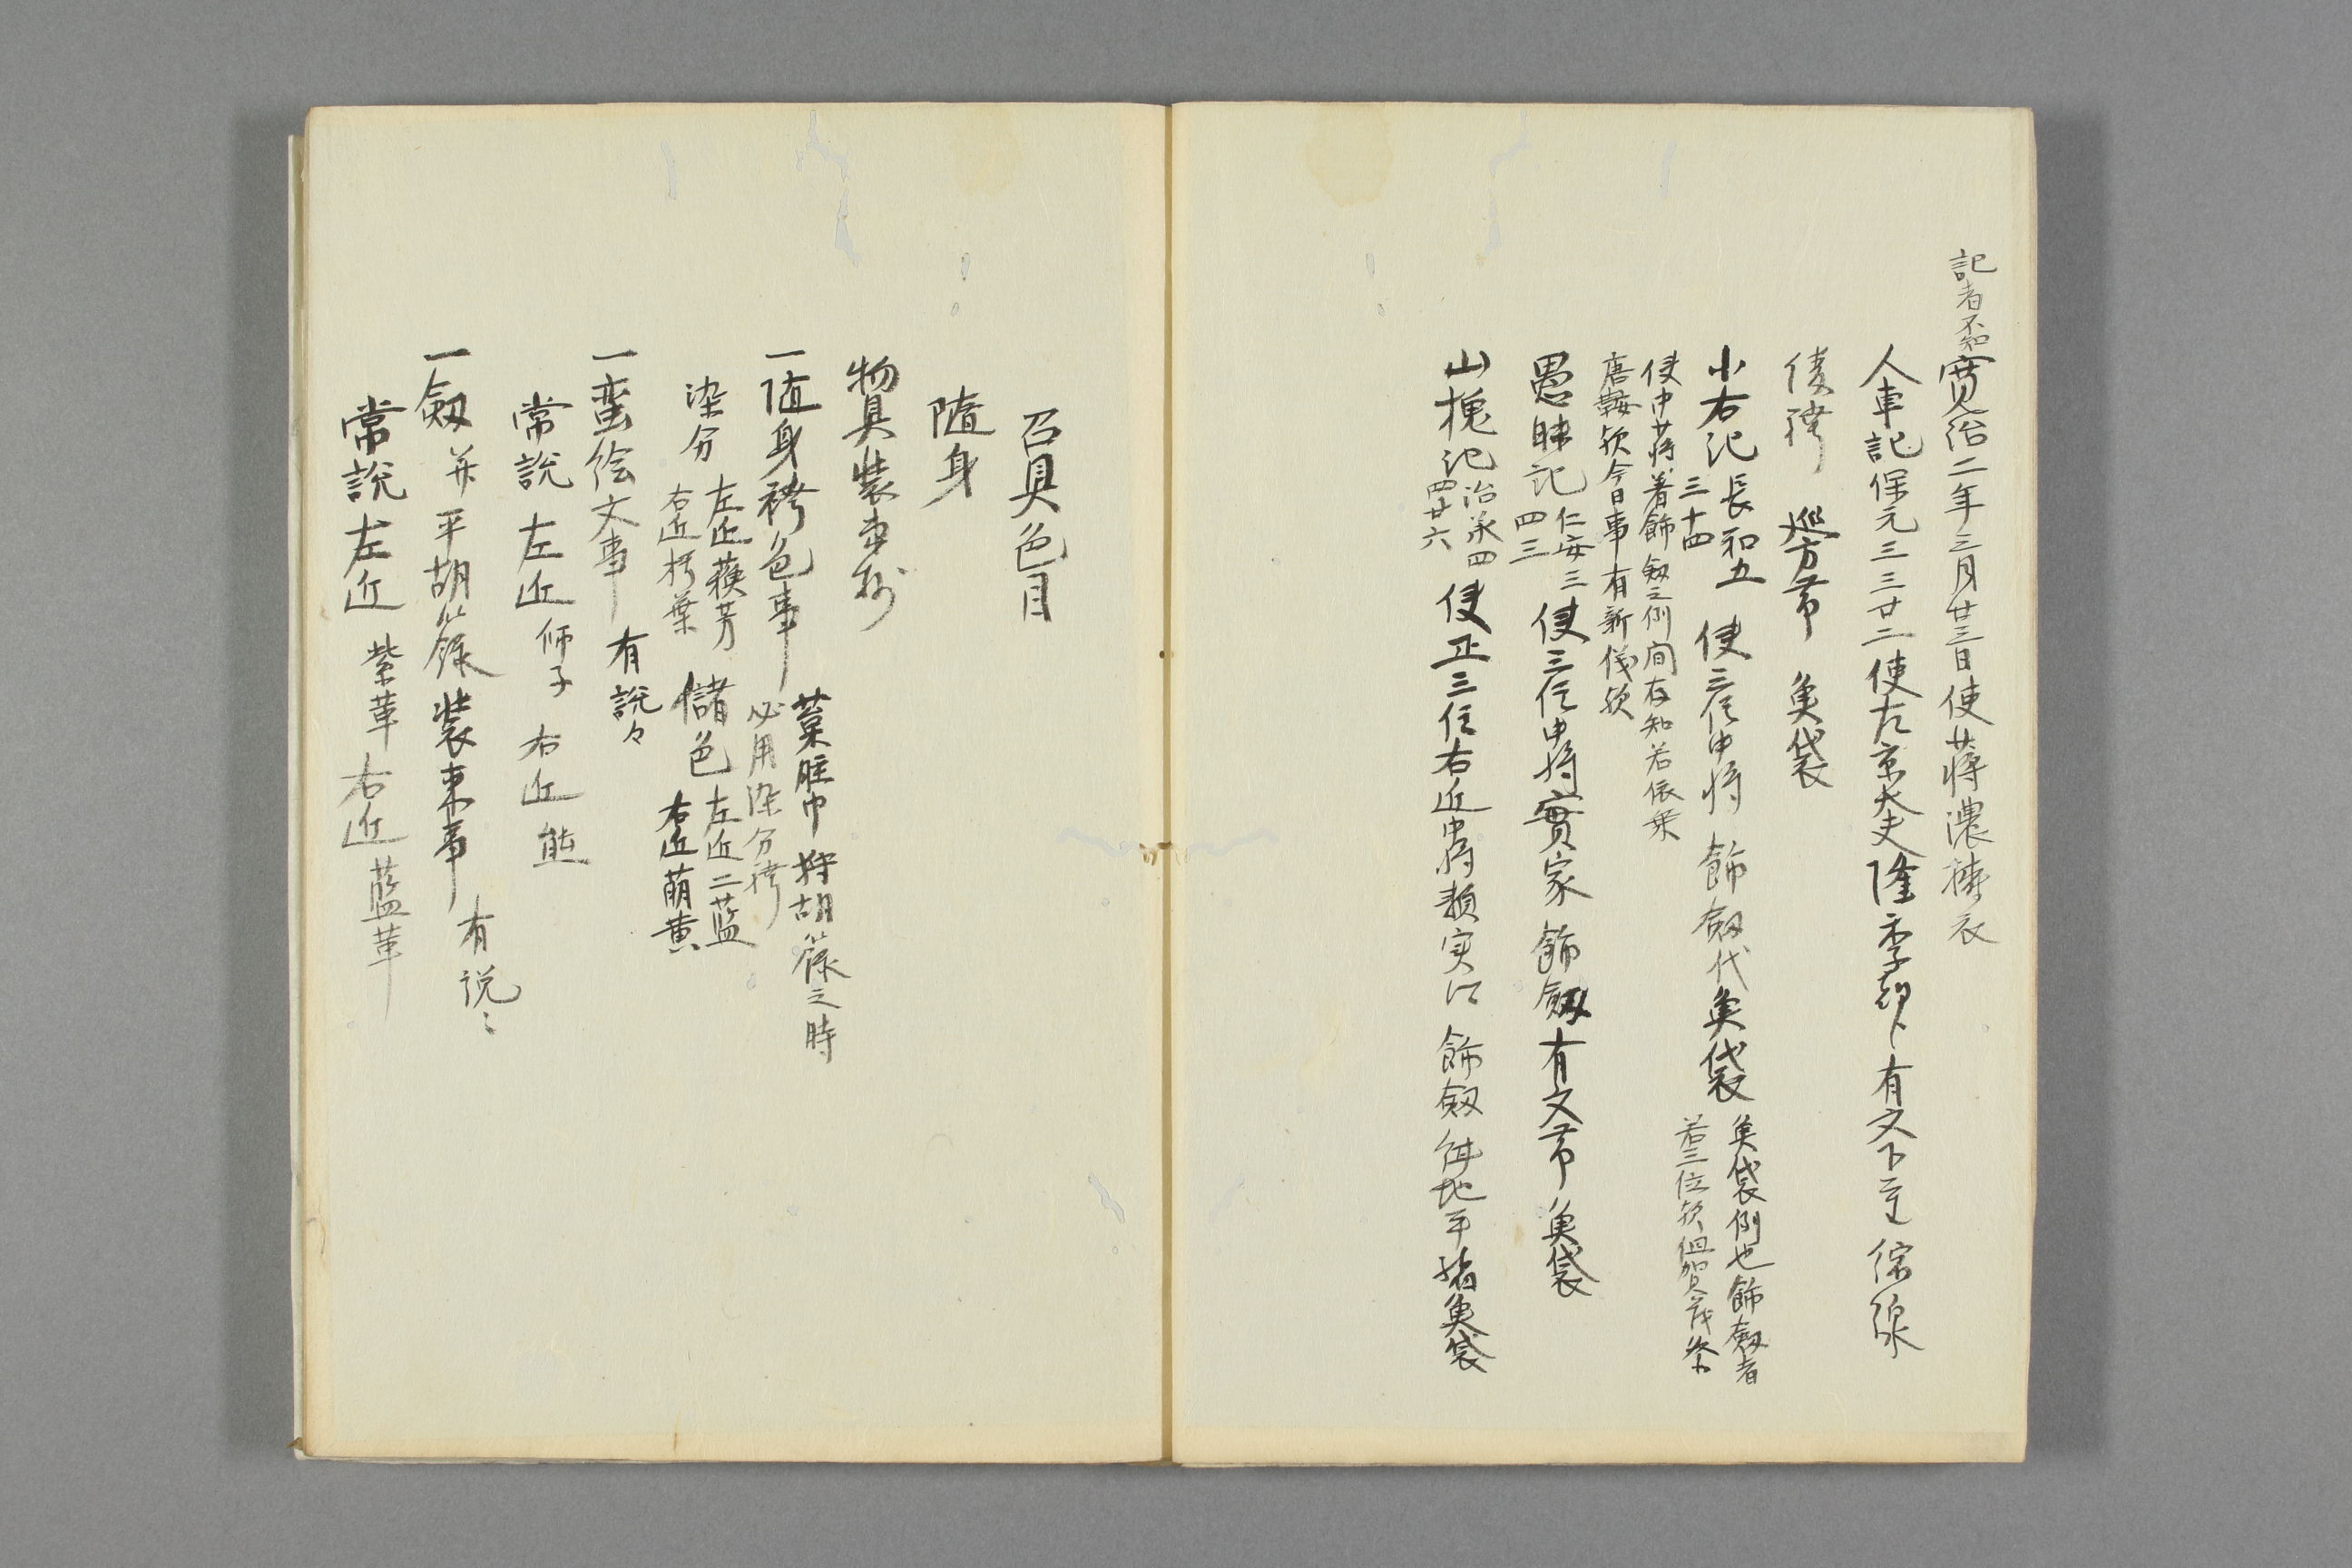 記者不知 寛治二年三月廿三日使蒋濃榛衣
人車記保元三三廿二使左京大夫隆季卿卜有文下重 綜線
倭袴 巡方帯 魚袋
小右記長和五三十四 使三位中将 飾劔代魚袋 魚袋例也飾劔者
若三位欤但賀茂祭
使中蒋着飾劔之例間存知若依乗
唐鞍欤今日事有新儀欤
愚昧記仁安三四三 使三位中将實家 飾劔有文帯 魚袋
山槐記治承四四廿六 使正三位右近中将頼実 飾劔 地平緒魚袋
召具色目
随身
物具装束抄
一随身袴色事 葉脛巾狩胡籙之時
必用染分袴
染分 左近蘓芳 儲色 左近二藍
右近朽葉 右近萠黄
一蛮絵文事 有説々
常説 左近師子 右近熊
一劔并平胡籙装束事 有説々
常説左近 紫革 右近藍革